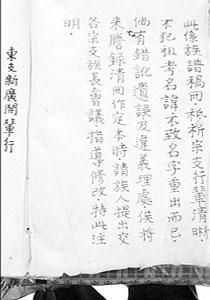 此係族譜稿囬祗祈宗支行輩清晰
不犯祖考名諱不致名字重出而已
倘有錯訛遺誤及違義理處俟將
来謄錄清囬作定本時請族人提出交
各宗支族長會議指導修改特此注
明
東支新廣開輩行